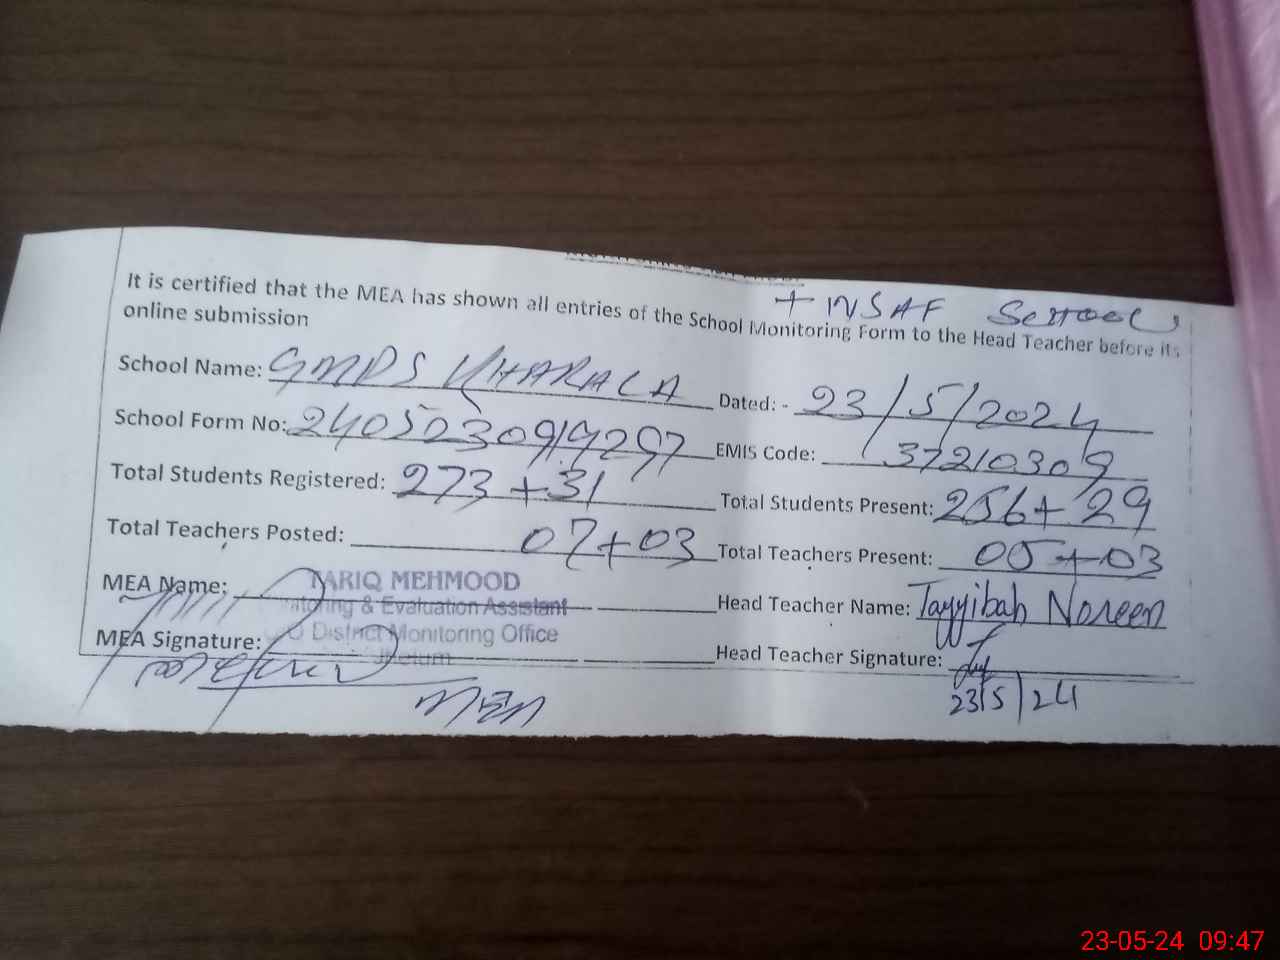 + INSAF School
It is certified that the MEA has shown all entries of the School Monitoring Form to the Head Teacher before its
online submission
School Name: GMPS KHARALA Dated: - 23/5/2024
School Form No: 2405230919297 EMIS Code: 37210309
Total Students Registered: 273+31 Total Students Present: 256+29
Total Teachers Posted: 07+03 Total Teachers Present: 05+03
MEA Name: TARIQ MEHMOOD Head Teacher Name: Tayyibah Noreen
itoring & Evaluation Assistant
MEA Signature: O District Monitoring Office Head Teacher Signature:
Jhelum
23/5/24
MEA
23-05-24 09:47